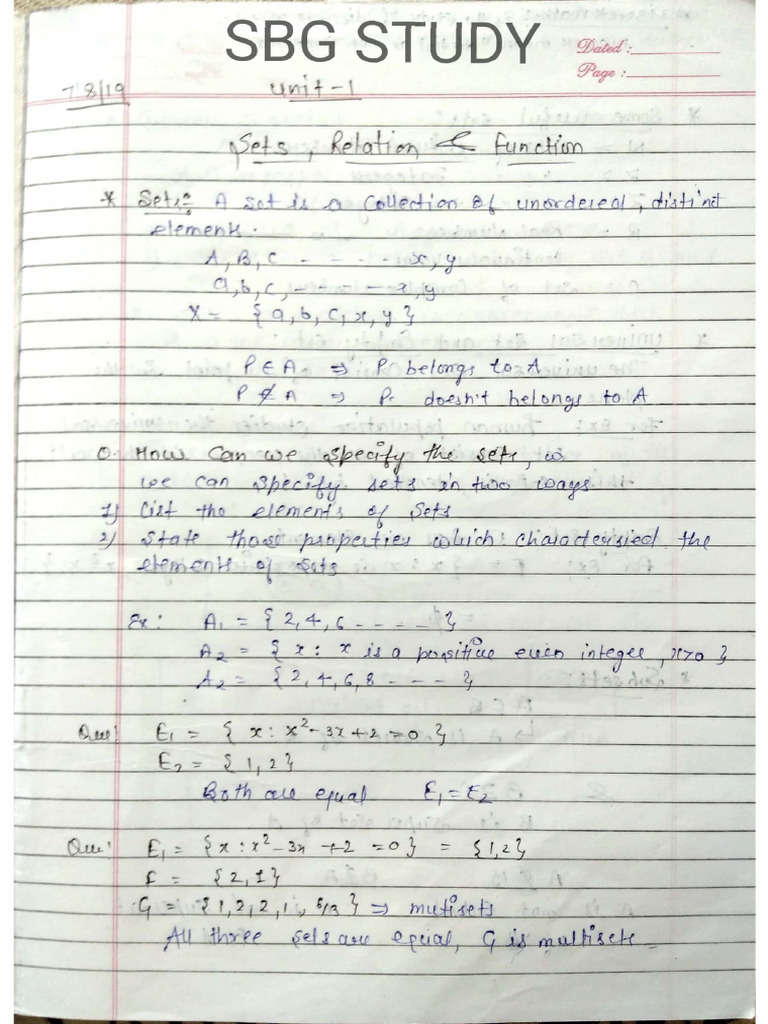 SBG STUDY
Dated :
Page :
7/8/19 Unit-1
Sets, Relation & Function
* Sets:- A set is a collection of unordered, distinct
elements.
A, B, C - - - - x, y
a, b, c, - - - x, y
X = {a, b, c, x, y}
P ∈ A ⇒ P belongs to A
P ∉ A ⇒ P doesn't belongs to A
Q. How can we specify the sets,
we can specify sets in two ways
1) List the elements of Sets
2) State those properties which characterisied the
elements of sets
Ex: A₁ = {2, 4, 6 - - - - }
A₂ = {x : x is a positive even integer, x>0}
A₂ = {2, 4, 6, 8 - - - }
Que: E₁ = {x : x²-3x+2=0}
E₂ = {1, 2}
Both are equal E₁=E₂
Que: E₁ = {x : x²-3x+2=0} = {1,2}
F = {2, 1}
G = {1, 2, 2, 1, 6/3} ⇒ mutisets
All three sets are equal, G is multisets